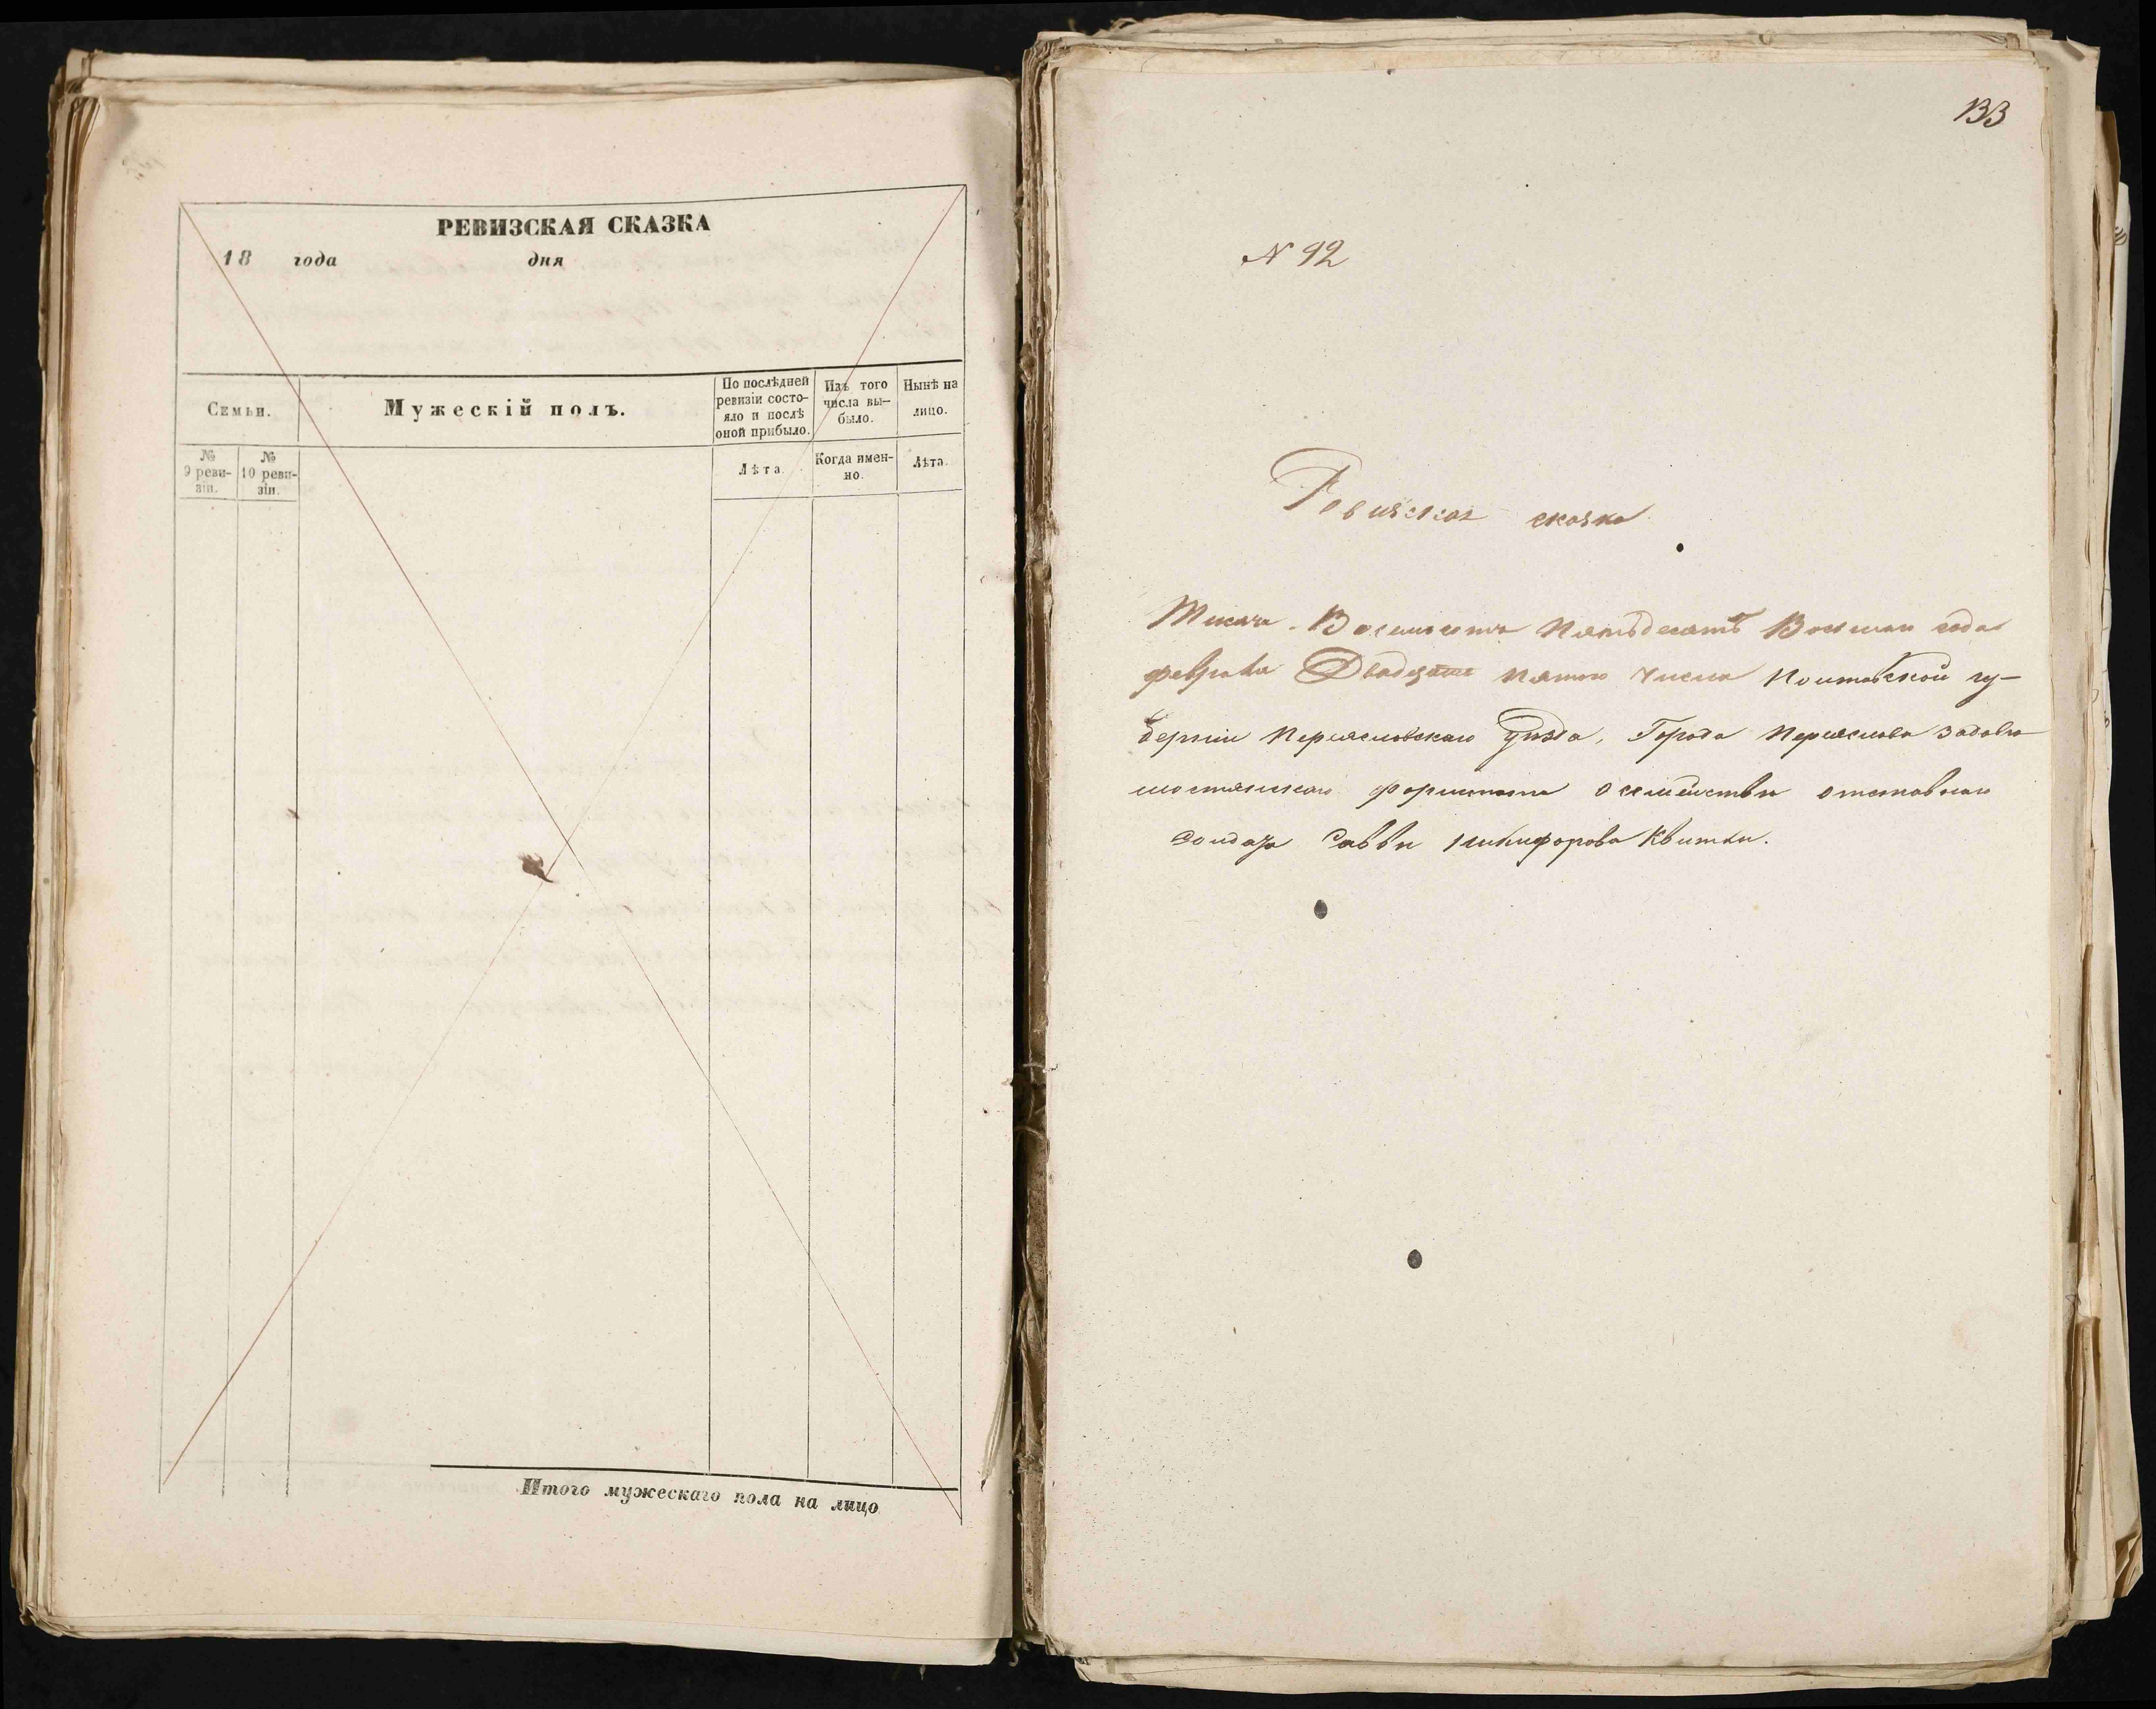 РЕВИЗСКАЯ СКАЗКА
18 года дня
Семьи.
Мужескій полъ.
По послѣдней
ревизіи состо-
яло и послѣ
оной прибыло.
Изъ того
числа вы-
было.
Нынѣ на
лицо.
№
9 реви-
зіи.
№
10 реви-
зіи.
Лѣта.
Когда имен-
но.
Лѣта.
Итого мужескаго пола на лицо
133
N 92
Ревизская сказка
Тисяча Восимсотъ Пятьдесятъ Восмаго года
февраля Двадцать пятого числа Полтавской гу-
берніи Переясловскаго уѣзда, Города Переяслова
форштата о семействѣ отставного
Солдата Саввы Никифорова Квитки.